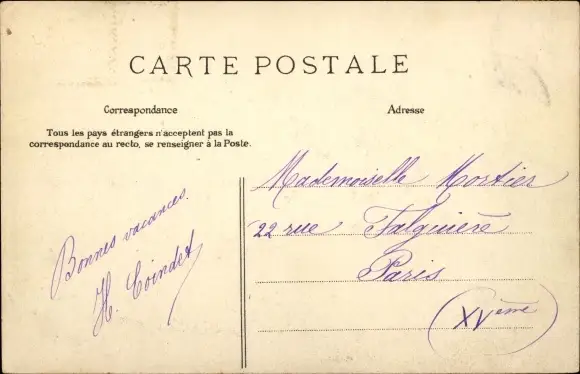 CARTE POSTALE
Correspondance
Adresse
Tous les pays étrangers n'acceptent pas la
correspondance au recto, se renseigner à la Poste.
Bonnes vacances.
H. Coindet
Mademoiselle Mortier
22 rue Falguière
Paris
(XVème)